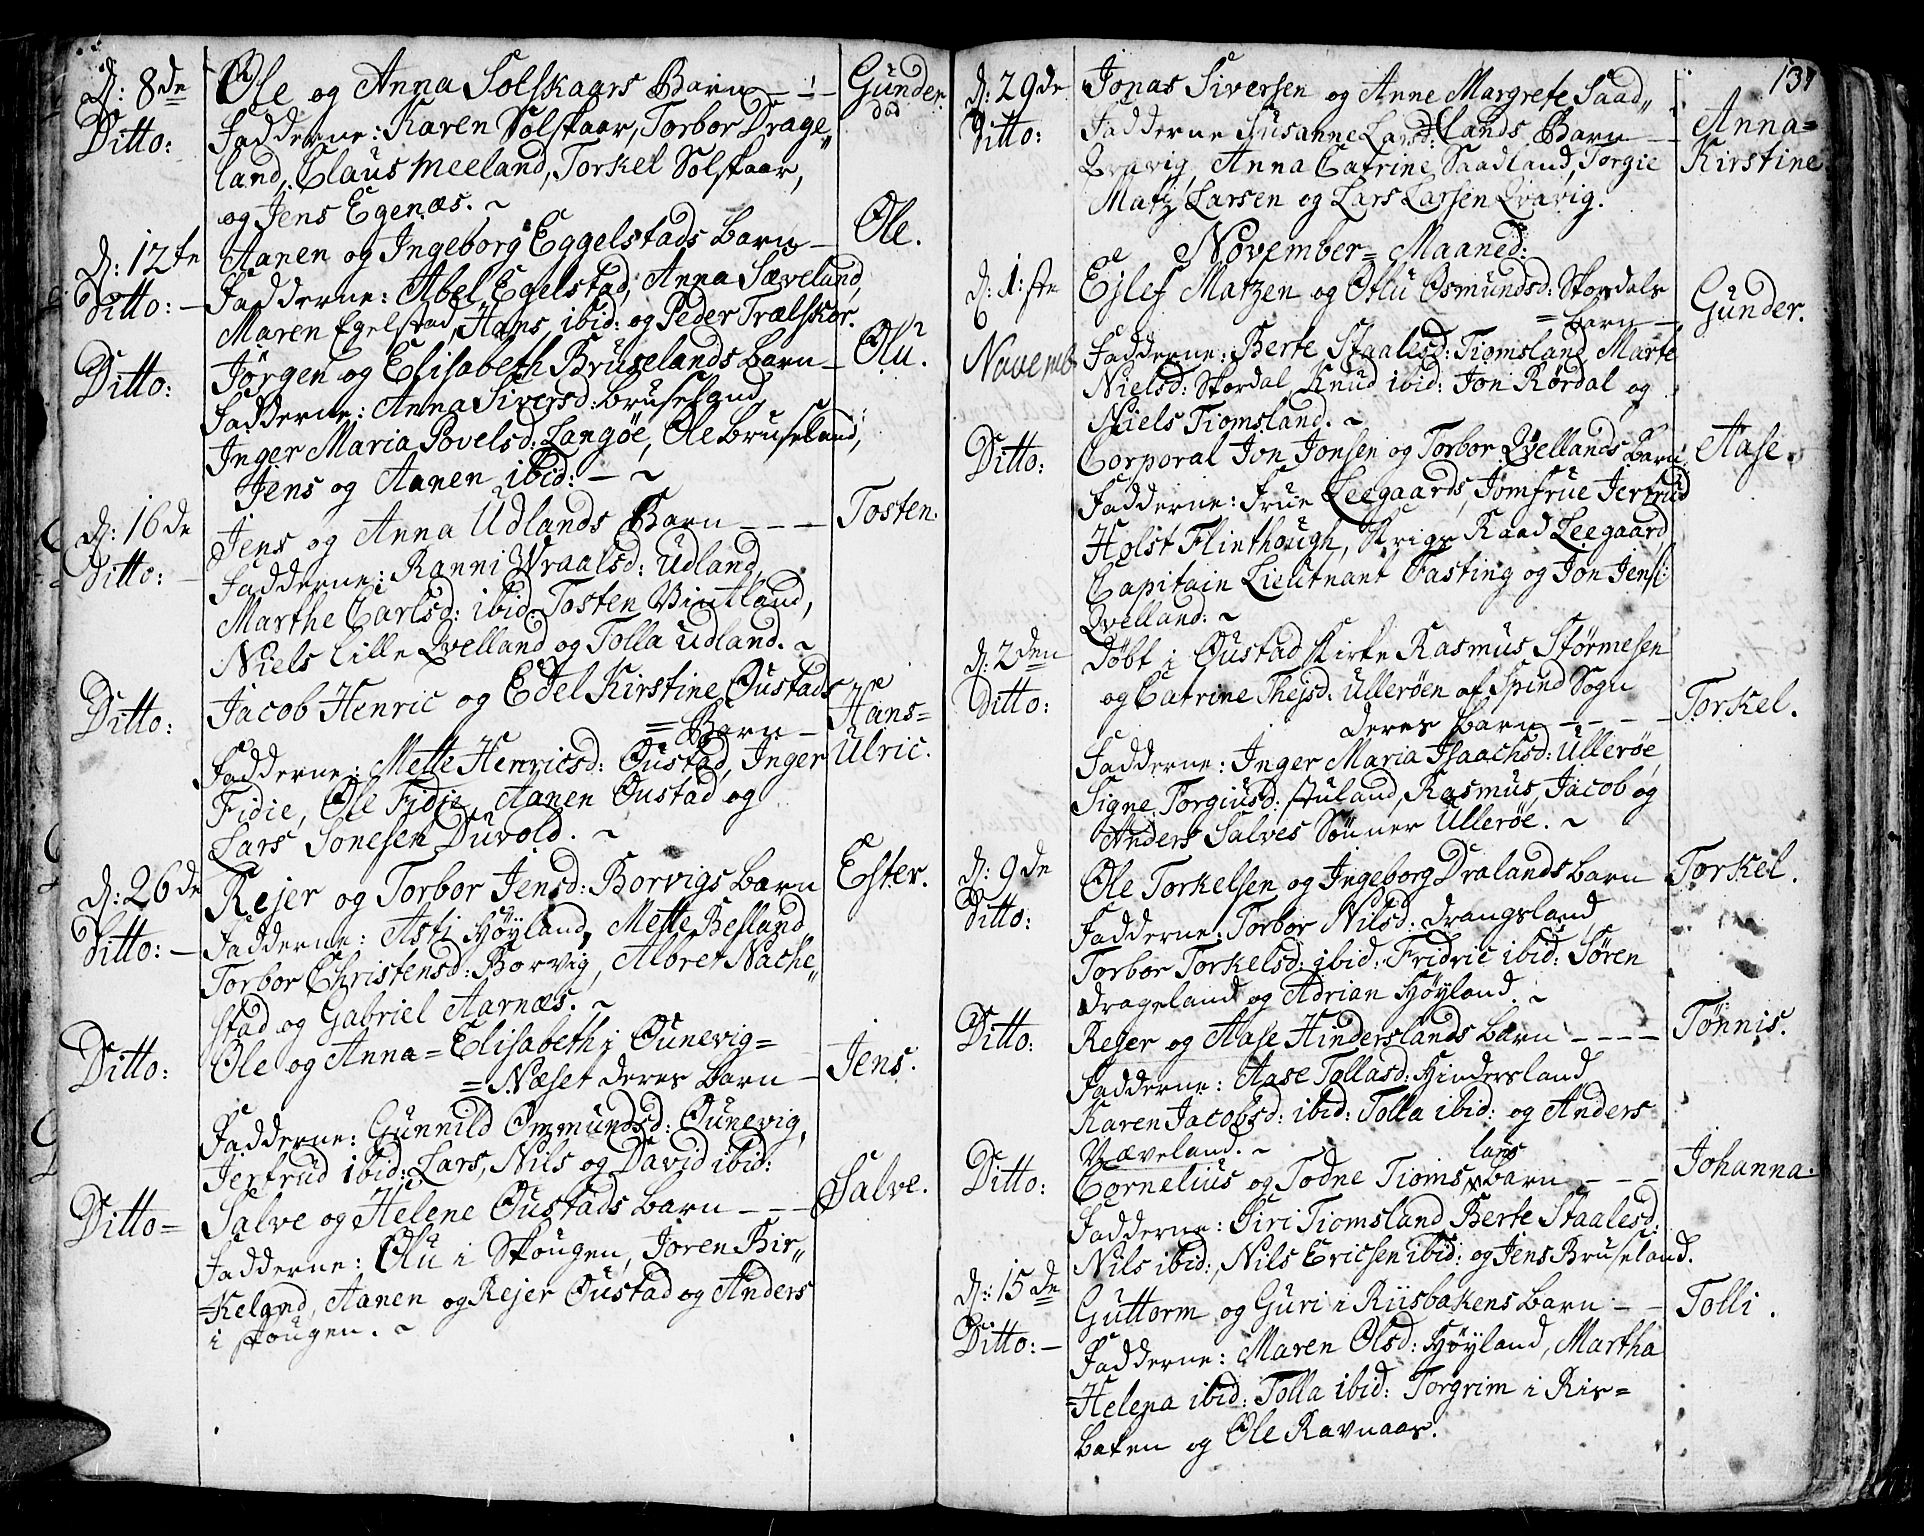 D: 8de Ole og Anna Solskaars Barn — Gunder.
död
Ditto: Fadderne: Karen Solskaar, Torbor Drage„
land, Claus Meeland, Torkel Solskaar,
og Jens Egenæs. ~
D: 12te Aanen og Ingeborg Eggelstads barn — Ole.
Ditto: — Fadderne: Abel Egelstad, Anna Sæveland,
Maren Egelstad, Hans ibid: og Peder Trælskor.
Ditto: Jørgen og Elisabeth Bruselands barn — Olu.
Fadderne: Anna Siversd: Bruseland,
Inger Maria Povelsd: Langøe, Ole bruseland,
Jens og Aanen ibid: — ~
D: 16de Jens og Anna Udlands Barn — — — Tosten.
Ditto: — Fadderne: Ranni Wraalsd: Udland,
Marthe Carlsd: ibid: Tosten Vintland,
Niels Lille Qvelland og Tolla Udland. ~
Ditto: Jacob Henric og Edel Kirstine Oustads
= Barn — Hans=
Ulric.
Fadderne: Mette Henricsd: Oustad, Inger
Fidie, Ole Fidie, Aanen Oustad og
Lars Sonesen Duvold. ~
D: 26de Rejer og Torbor Jensd: Borvigs barn Ester.
Ditto: — Fadderne: Asti Høyland, Mette Besland,
Torbor Christensd: Borvig, Albret Nache„
stad og Gabriel Aarnæs. ~
Ditto: Ole og Anna=Elisabeth i Ounevig=
=Næset deres barn — Jens.
Fadderne: Gunnild Ommundsd: Ounevig,
Jertrud ibid: Lars, Nils og David ibid:
Ditto= Salve og Helene Oustads barn — — — Salve.
Fadderne: Olu i Skougen, Joren Bir„
=Keland, Aanen og Rejer Oustad og Anders
i skougen. ~
137
D: 29de Jonas Siversen og Anne Margrete Saad„
Ditto: Fadderne Susanne Larsd: (lands Barn — Anna=
Kirstine
Qvavig, Anna Catrine Saadland, Torgie
Matz Larsen og Lars Larsen Qvavig.
November= Maaned:
D: 1:ste Ejlef Matzen og Otlu Osmundsd: Skordals
= barn — Gunder.
Novemb. Fadderne: Berte Staalesd: Tiomsland, Marte
Nielsd: Skordal, Knud ibid: Jon Rørdal og
Niels Tiomsland. ~
Ditto: Corporal Jon Jonsen og Torbor Qvellands barn Aase.
Fadderne: Frue Leegaards, Jomfrue Jertrud
Holst Flinthough, Krigs Raad Leegaard,
Capitain Lieutnant Fasting og Jon Jens:
Qvelland: ~
D: 2den Døbt i Oustad Kirke Rasmus Størmesen
Ditto: og Catrine Thejsd: Ullerøen af Spind Sogn
deres barn — — — — Torkel.
Fadderne: Inger Maria Isaachsd: Ullerøe,
Signe Torgiusd: stuland, Rasmus, Jacob og
Anders Salves Sønner Ullerøe. ~
D: 9de Ole Torkelsen og Ingeborg Dralands barn Torkel.
Ditto: Fadderne: Torbor Nilsd: Drangsland,
Torbor Torkelsd: ibid: Fridric ibid: Søren
Drageland og Adrian Høyland. ~
Ditto: Rejer og Aase Hinderslands barn — — — — Tønnis.
Fadderne: Aase Tollasd: Hindersland
Karen Jacobsd: ibid: Tolla ibid: og Anders
Væveland. ~
lans
Ditto: Cornelius og Todne Tioms barn — — — Johanna.
Fadderne: Siri Tiomsland, Berte Staalesd:
Nils ibid:, Nils Ericsen ibid: og Jens Bruseland.
D: 15de Guttorm og Guri i Riisbakens barn — — Tolli.
Ditto: — Fadderne: Maren Olsd: Høyland, Martha
=Helena ibid: Tolla ibid: Torgrim i Ris=
baken og Ole Ravnaas.